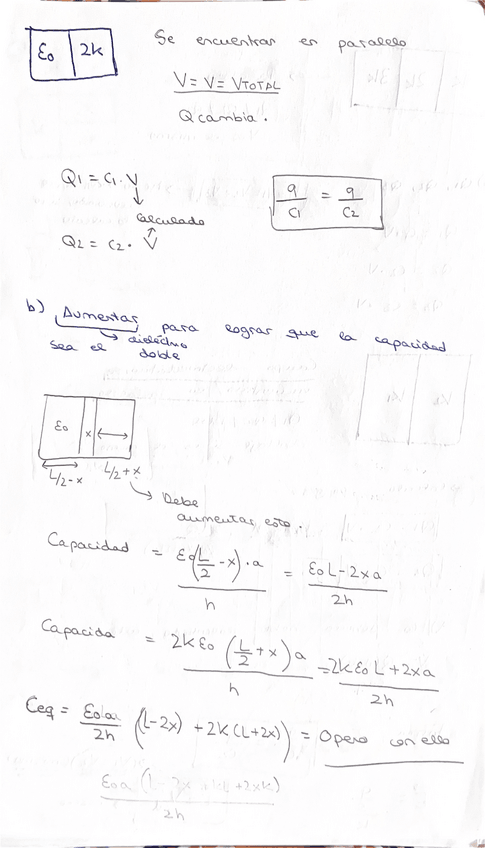 Se encuentran en paralelo
ε0 2k
V = V = VTOTAL
Q cambia.
Q1 = C1 · V
calculado
Q2 = C2 · V
q/C1 = q/C2
b) Aumentar para lograr que la capacidad
dieléctrico
sea el doble
ε0 x
L/2-x L/2+x
Debe
aumentar esto.
Capacidad = ε0(L/2 - x)·a / h = ε0L-2xa / 2h
Capacida = 2kε0 (L/2 + x)a / h = 2kε0L+2xa / 2h
Ceq = ε0a / 2h ((L-2x) + 2k(L+2x)) = Opero con ello